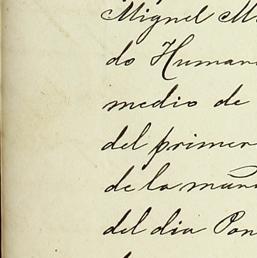 Miguel M
do Human
medio de
del primer
de la mur
del dia Pon